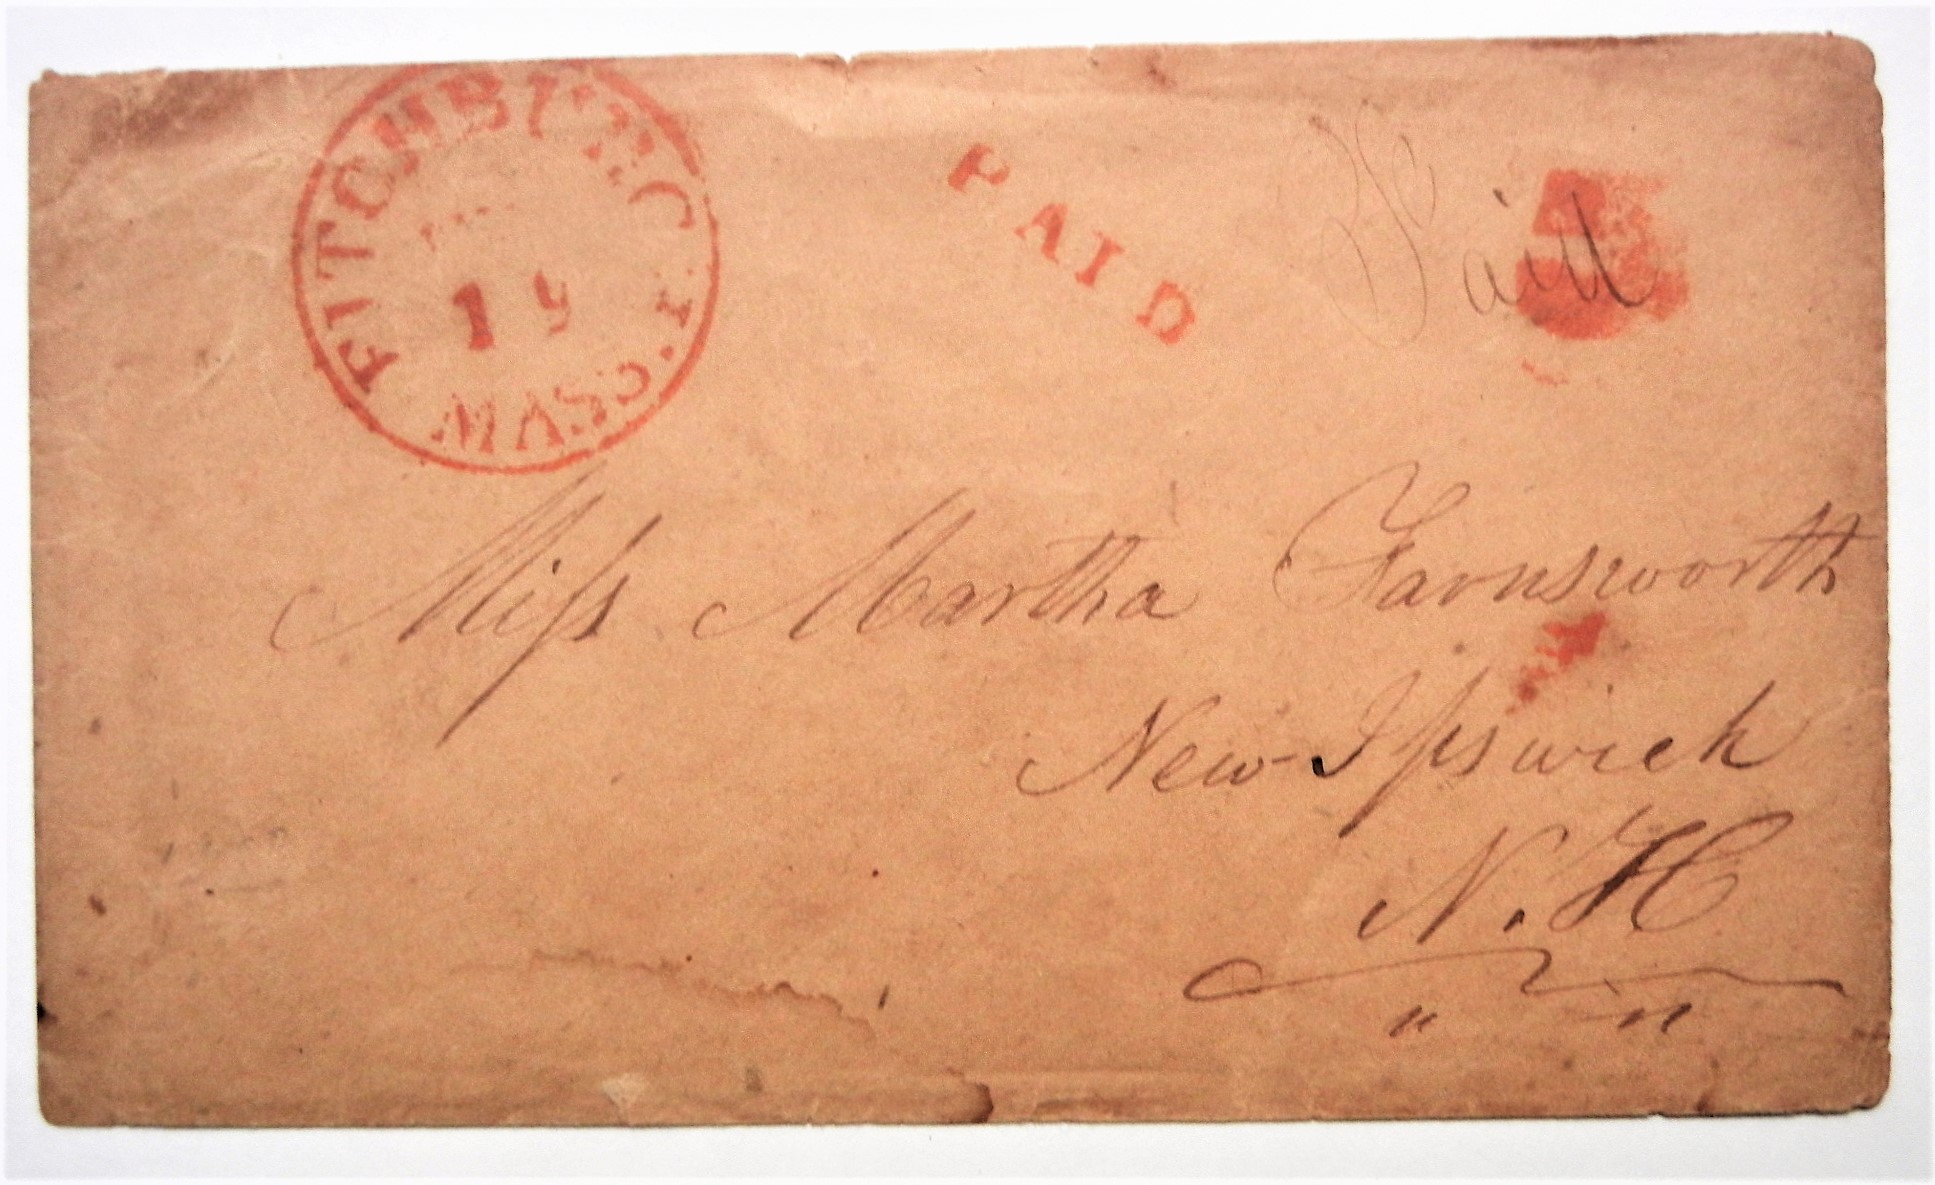 FITCHBURG MS.
19
MASS
PAID
Paid
5
Miss Martha Farnsworth
New-Ipswich
N. H
" "